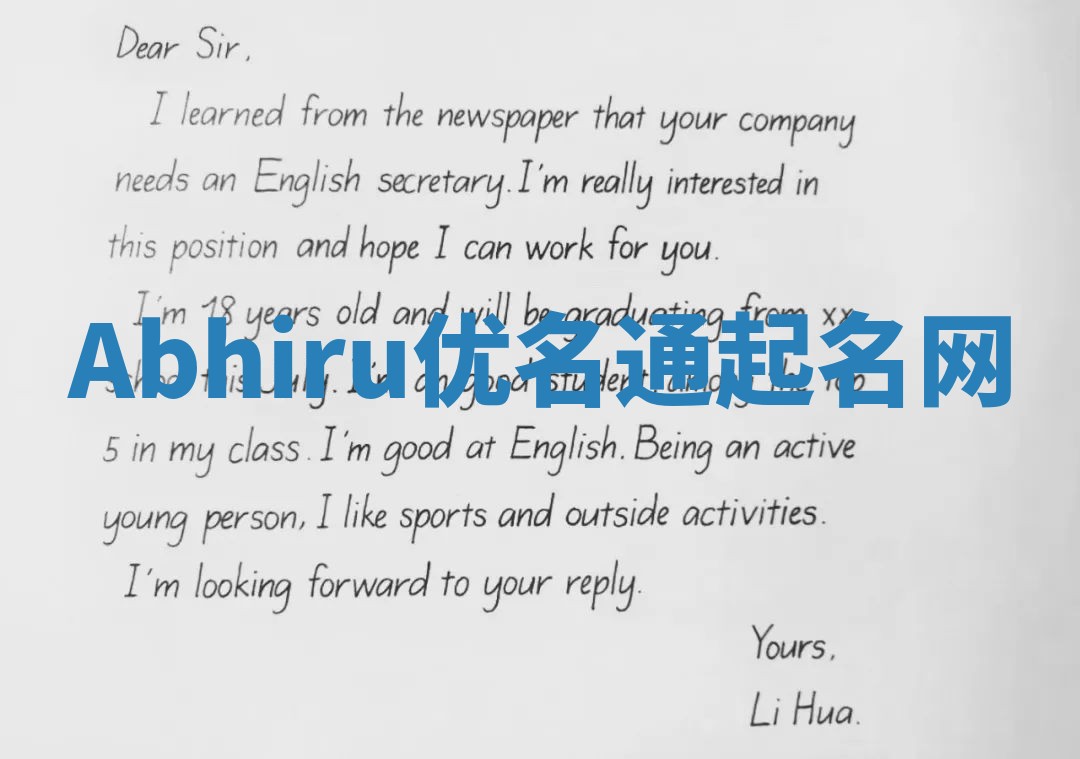 Dear Sir,
I learned from the newspaper that your company
needs an English secretary. I'm really interested in
this position and hope I can work for you.
I'm 18 years old and will be graduating from xx
Abhiru优名通起名网
school this July. I'm an good student, among the top
5 in my class. I'm good at English. Being an active
young person, I like sports and outside activities.
I'm looking forward to your reply.
Yours,
Li Hua.